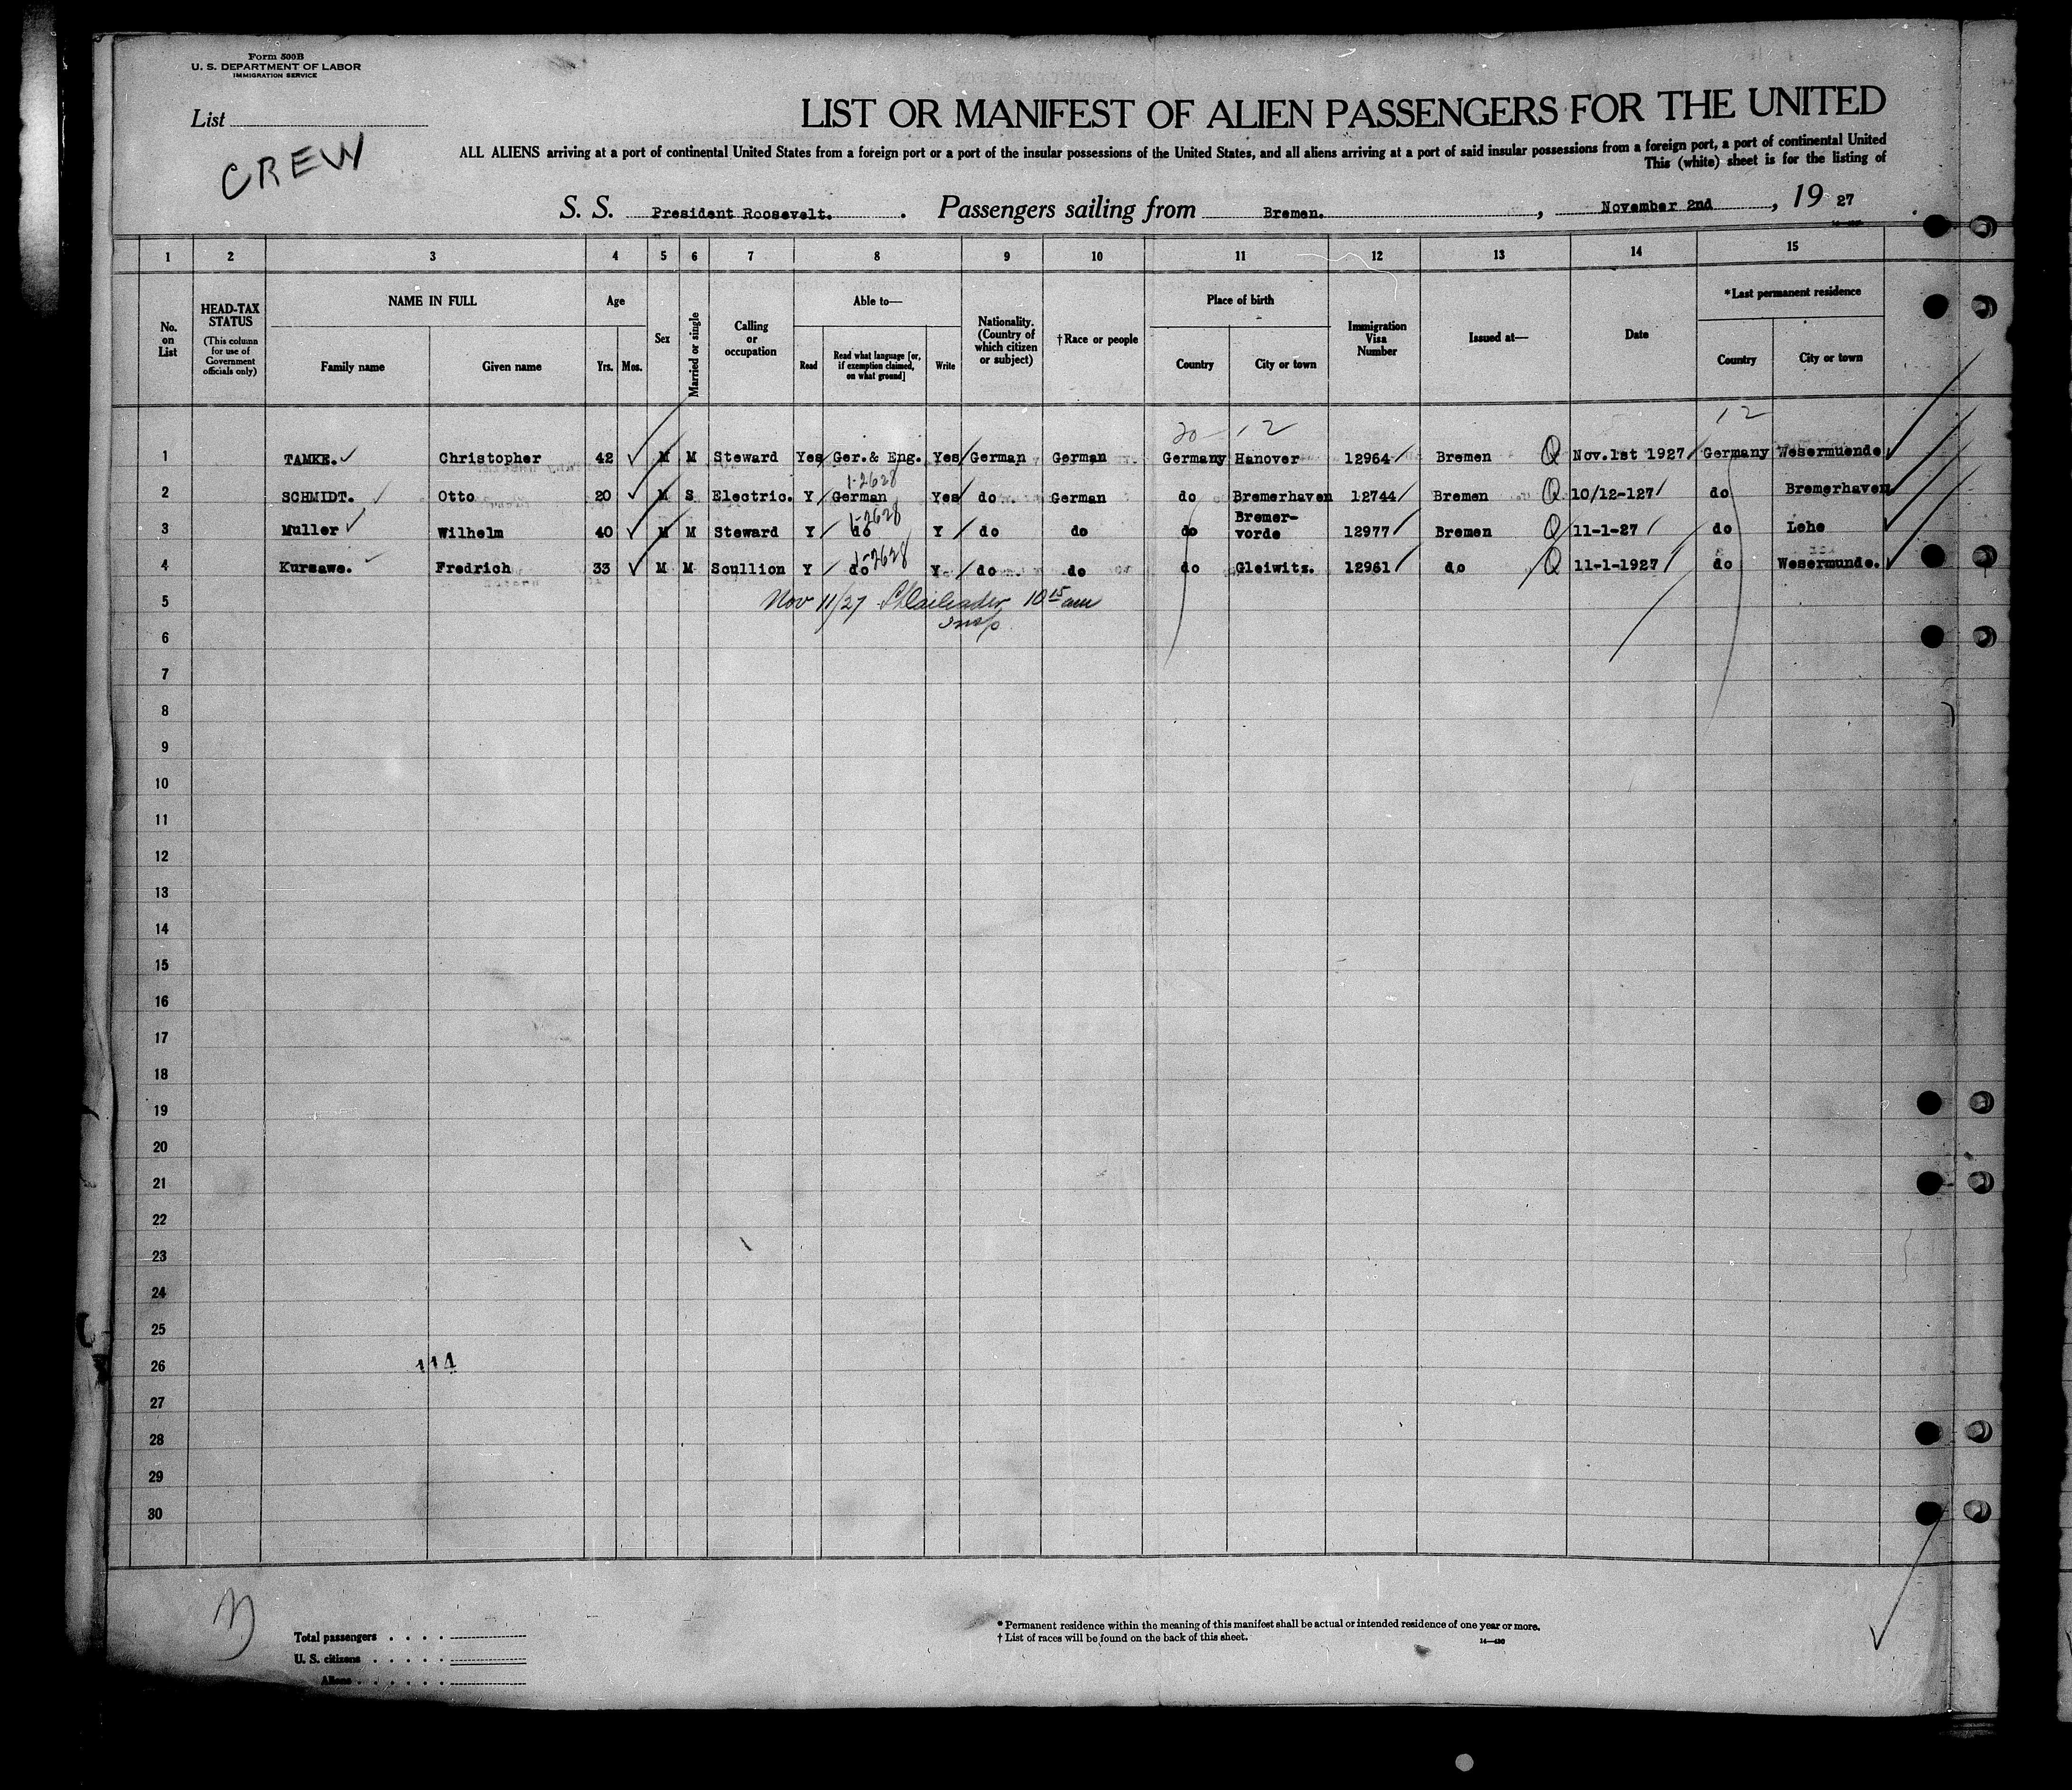 Form 500B
U. S. DEPARTMENT OF LABOR
IMMIGRATION SERVICE
List
CREW
LIST OR MANIFEST OF ALIEN PASSENGERS FOR THE UNITED
ALL ALIENS arriving at a port of continental United States from a foreign port or a port of the insular possessions of the United States, and all aliens arriving at a port of said insular possessions from a foreign port, a port of continental United
This (white) sheet is for the listing of
S. S. President Roosevelt. . Passengers sailing from Bremen. , November 2nd , 19 27
1 2 3 4 5 6 7 8 9 10 11 12 13 14 15
No. on List
HEAD-TAX STATUS
(This column for use of Government officials only)
NAME IN FULL
Family name
Given name
Age
Yrs. Mos.
Sex
Married or single
Calling or occupation
Able to—
Read
Read what language [or, if exemption claimed, on what ground]
Write
Nationality. (Country of which citizen or subject)
†Race or people
Place of birth
Country
City or town
Immigration Visa Number
Issued at—
Date
*Last permanent residence
Country
City or town
20 12 12
1 TAMKE. Christopher 42 M M Steward Yes Ger. & Eng. Yes German German Germany Hanover 12964 Bremen Q Nov. 1st 1927 Germany Wesermuende
1-2628
2 SCHMIDT. Otto 20 M S Electric. Y German Yes do German do Bremerhaven 12744 Bremen Q 10/12-127 do Bremerhaven
1-2628
3 Muller Wilhelm 40 M M Steward Y do Y do do do Bremer-vorde 12977 Bremen Q 11-1-27 do Lehe
1-2628
4 Kursawe. Fredrich 33 M M Scullion Y do Y do do do Gleiwitz. 12961 do Q 11-1-1927 do Wesermunde.
5 Nov 11/27 10 15 am
Insp
6
7
8
9
10
11
12
13
14
15
16
17
18
19
20
21
22
23
24
25
26 114
27
28
29
30
Total passengers
U. S. citizens
Aliens
* Permanent residence within the meaning of this manifest shall be actual or intended residence of one year or more.
† List of races will be found on the back of this sheet.